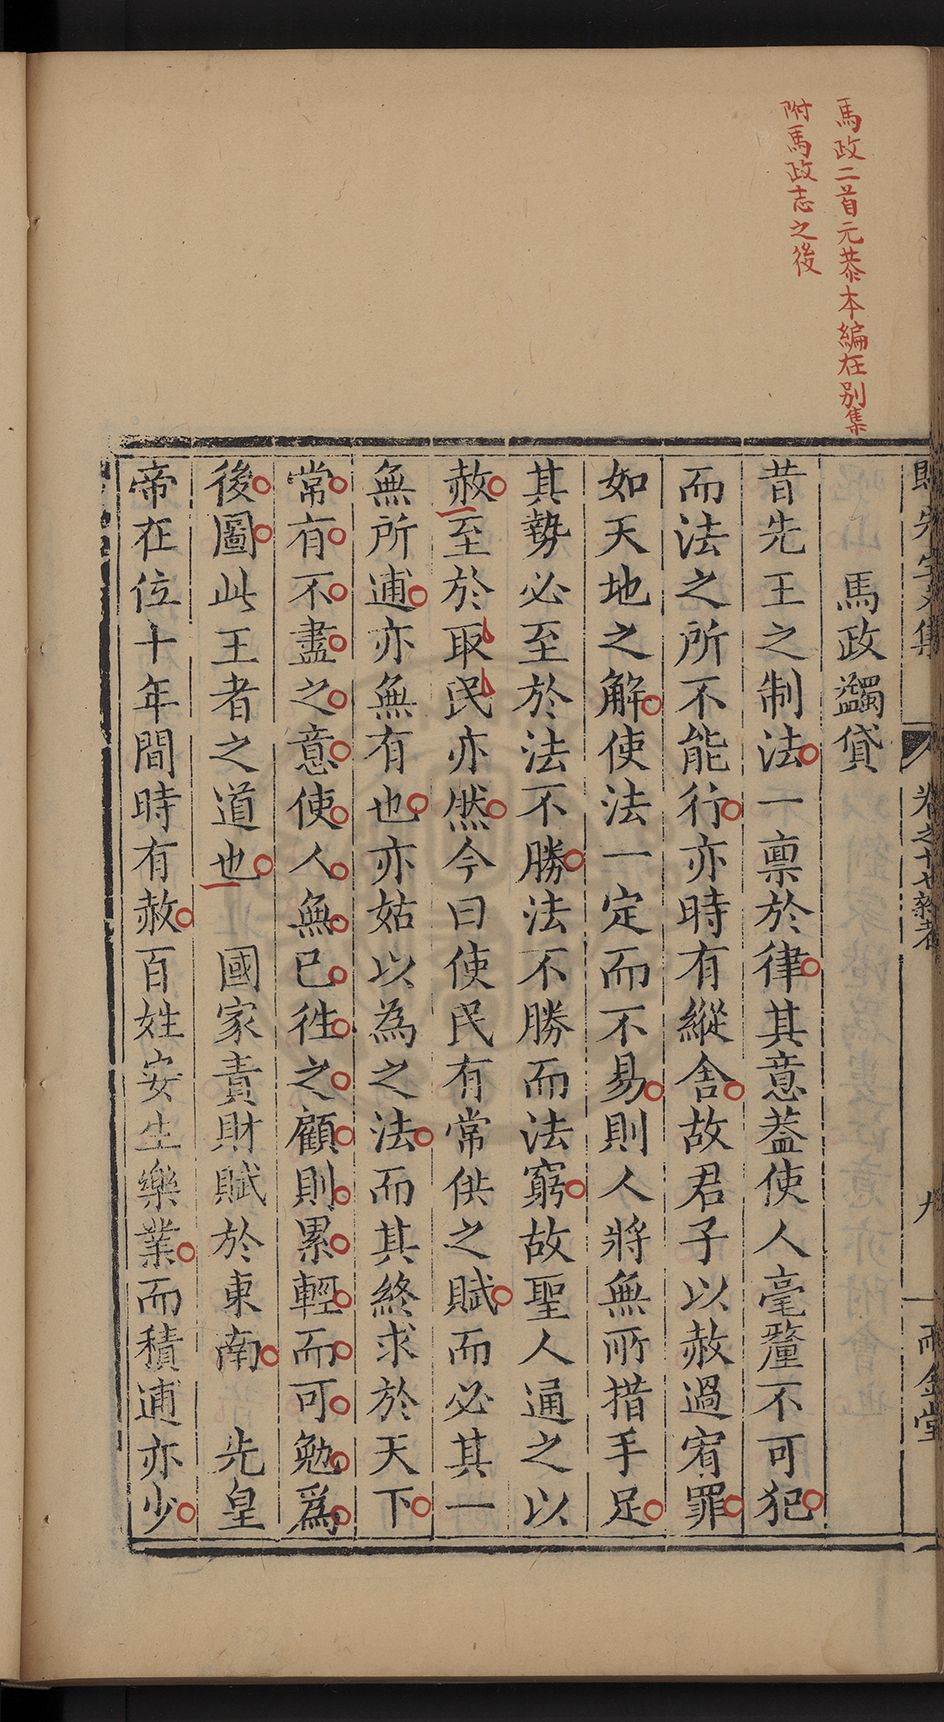 馬政二首元恭本編在別集
附馬政志之後
馬政蠲貸
昔先王之制法一禀於律其意葢使人毫釐不可犯
而法之所不能行亦時有縱舍故君子以赦過宥罪
如天地之解使法一定而不易則人將無所措手足
其勢必至於法不勝法不勝而法窮故聖人通之以
赦至於取民亦然今曰使民有常供之賦而必其一
無所逋亦無有也亦姑以為之法而其終求於天下
常有不盡之意使人無已徃之顧則累輕而可勉爲
後圖此王者之道也　國家責財賦於東南　先皇
帝在位十年間時有赦百姓安生樂業而積逋亦少